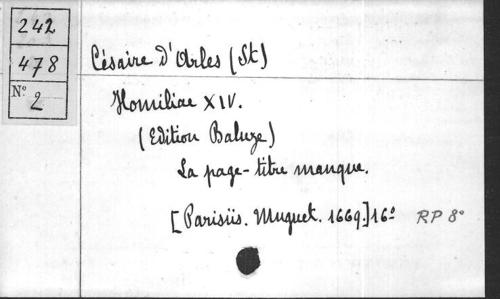 242
478
N° 2
Césaire d'Arles (St)
Homiliae XIV.
(Edition Baluze)
La page-titre manque.
[Parisiis. Muguet. 1669.] 16° RP 8°